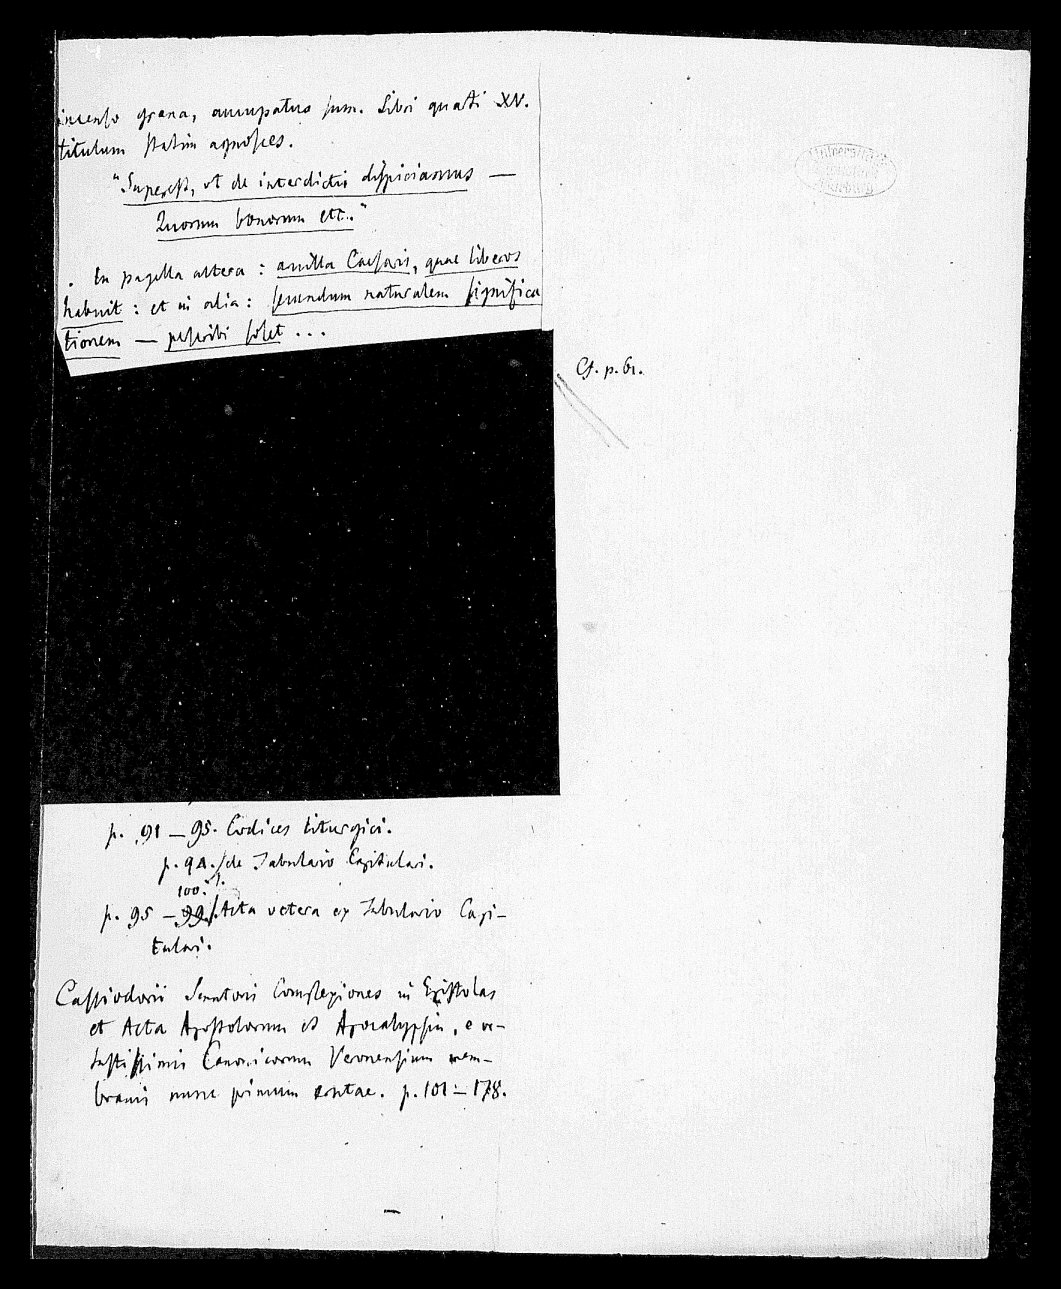 incenso grana, aucupatus sum. Libri quarti XV.
titulum statim agnosces.
"Superest, ut de interdictis dispiciamus —
Quorum bonorum etc.."
. In pagella altera : ancilla Caesaris, quae liberos
habuit : et in alia : secundum naturalem significa
tionem — perscribi solet . . .
Cf. p. 61.
Universitäts
Marburg
p. 91 — 95. Codices liturgici.
p. 94. de Tabulario Capitulari.
100.
p. 95 — 99. Acta vetera ex Tabulario Capi-
tulari.
Cassiodorii Senatoris Complexiones in Epistolas
et Acta Apostolorum et Apocalypsin, e ve-
tustissimis Canonicorum Veronensium mem-
branis nunc primum erutae. p. 101 — 178.